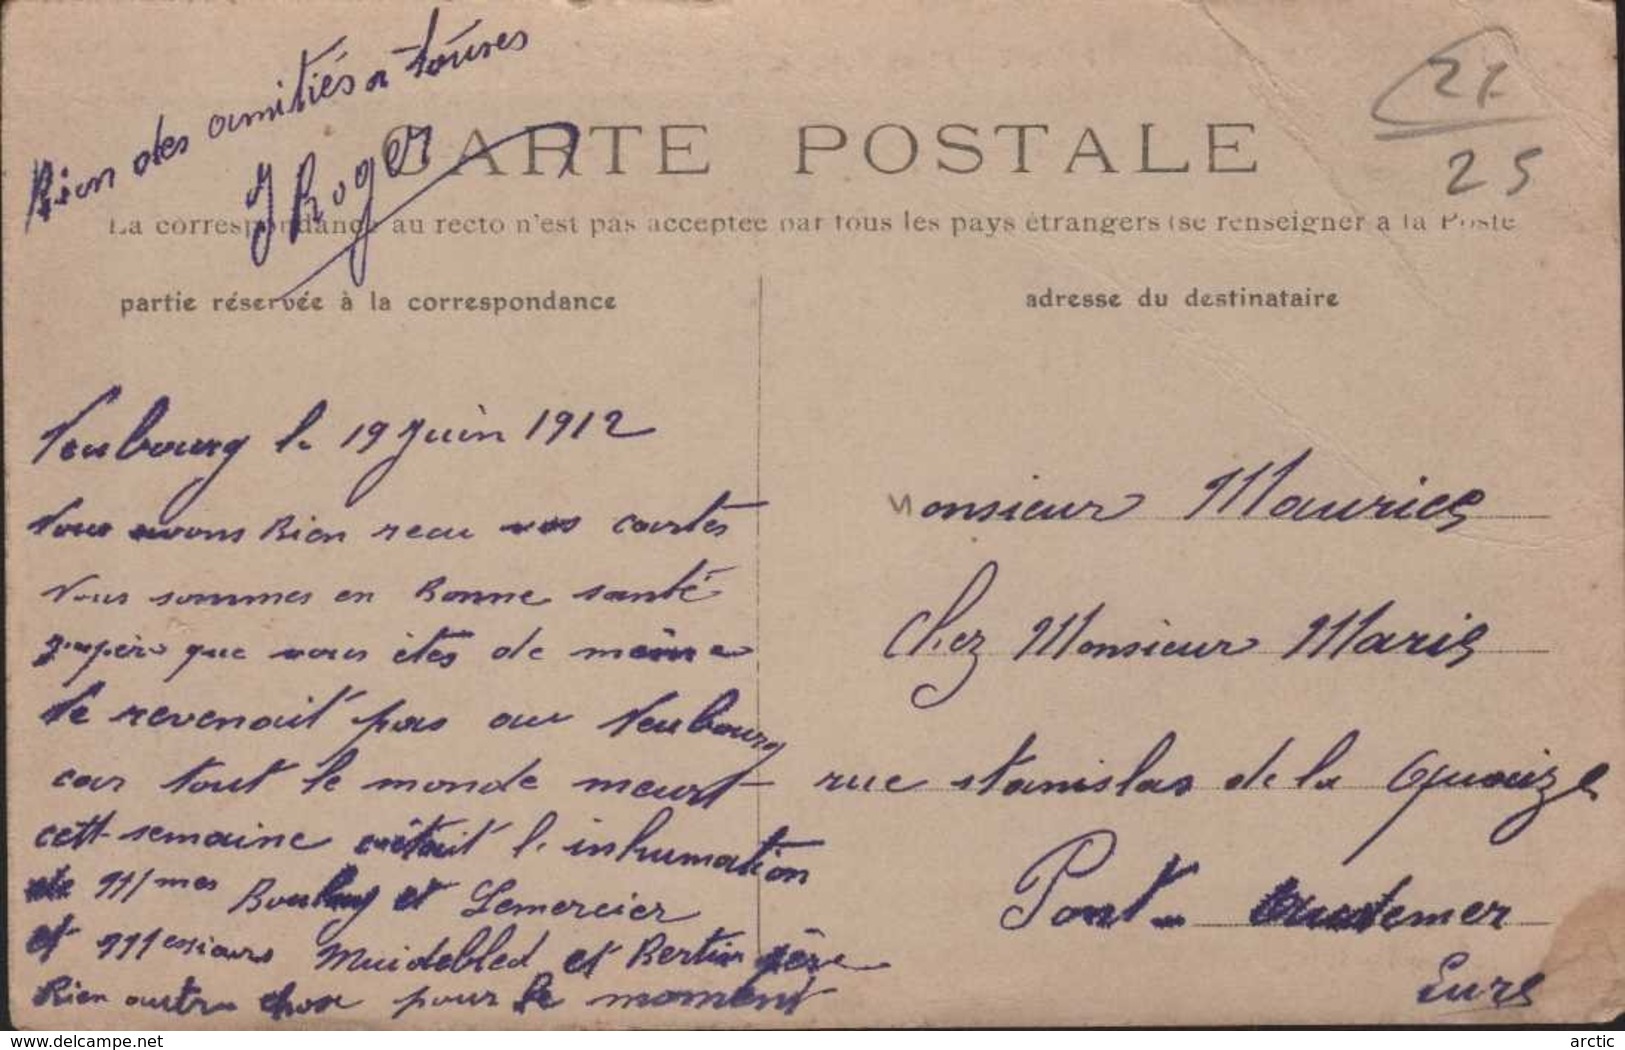 Bien des amitiés a tousses
J Roger
CARTE POSTALE
27
25
La correspondance au recto n'est pas acceptée par tous les pays étrangers (se renseigner à la Poste
partie réservée à la correspondance
adresse du destinataire
Neubourg le 19 Juin 1912
Nous avons Bien reau vos cartes
Nous sommes en Bonne santé
que vous êtes de même
Ne revenait pas au Neubourg
car tout le monde meurt
cette semaine cétait l'inhumation
de Mmes et Lemercier
et Messieurs Muidebled et Bertin père
Rien autre chose pour le moment
Monsieur Maurice
Chez Monsieur Marie
rue Stanislas de la Quaize
Pont-Audemer
Eure
delcampe.net
arctic